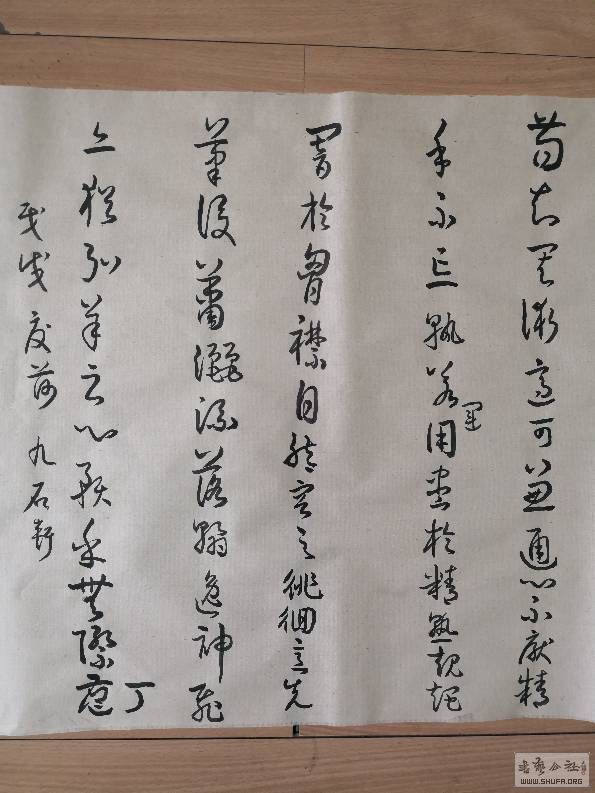 苟知其術適可兼通心不厭精
手不忘熟若運用盡於精熟規矩
闇於胷襟自然容与徘徊意先
筆後瀟灑流落翰逸神飛
亦猶弘羊之心預乎無際庖丁
戊戌夏荷九石
WWW.SHUFA.ORG